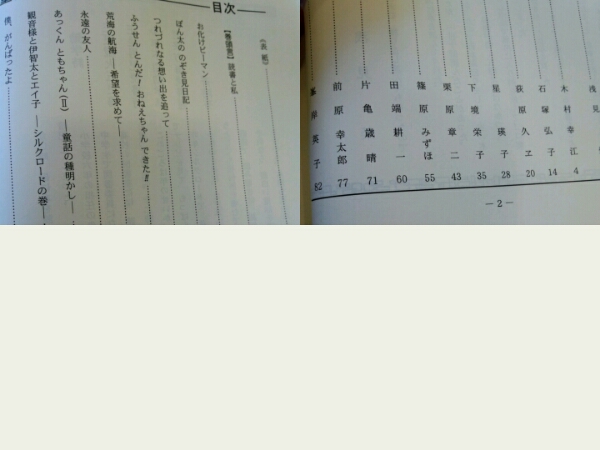 目次
(表紙)
【巻頭言】読書と私
お化けピーマン
ぽん太の のぞき見日記
つれづれなる想い出を追って
ふうせん とんだ! おねえちゃん できた!!
荒海の航海 ―希望を求めて―
永遠の友人
あっくん ともちゃん(Ⅱ) ―童話の種明かし―
観音様と伊智太とエイ子 ―シルクロードの巻―
僕、がんばったよ
浅見
木村幸江 4
石塚弘子 14
荻原久ヱ子 20
星瑛子 28
下境栄子 35
栗原章二 43
篠原みずほ 55
田端耕一 60
片亀歳晴 71
前原幸太郎 77
岸英子 82
―2―